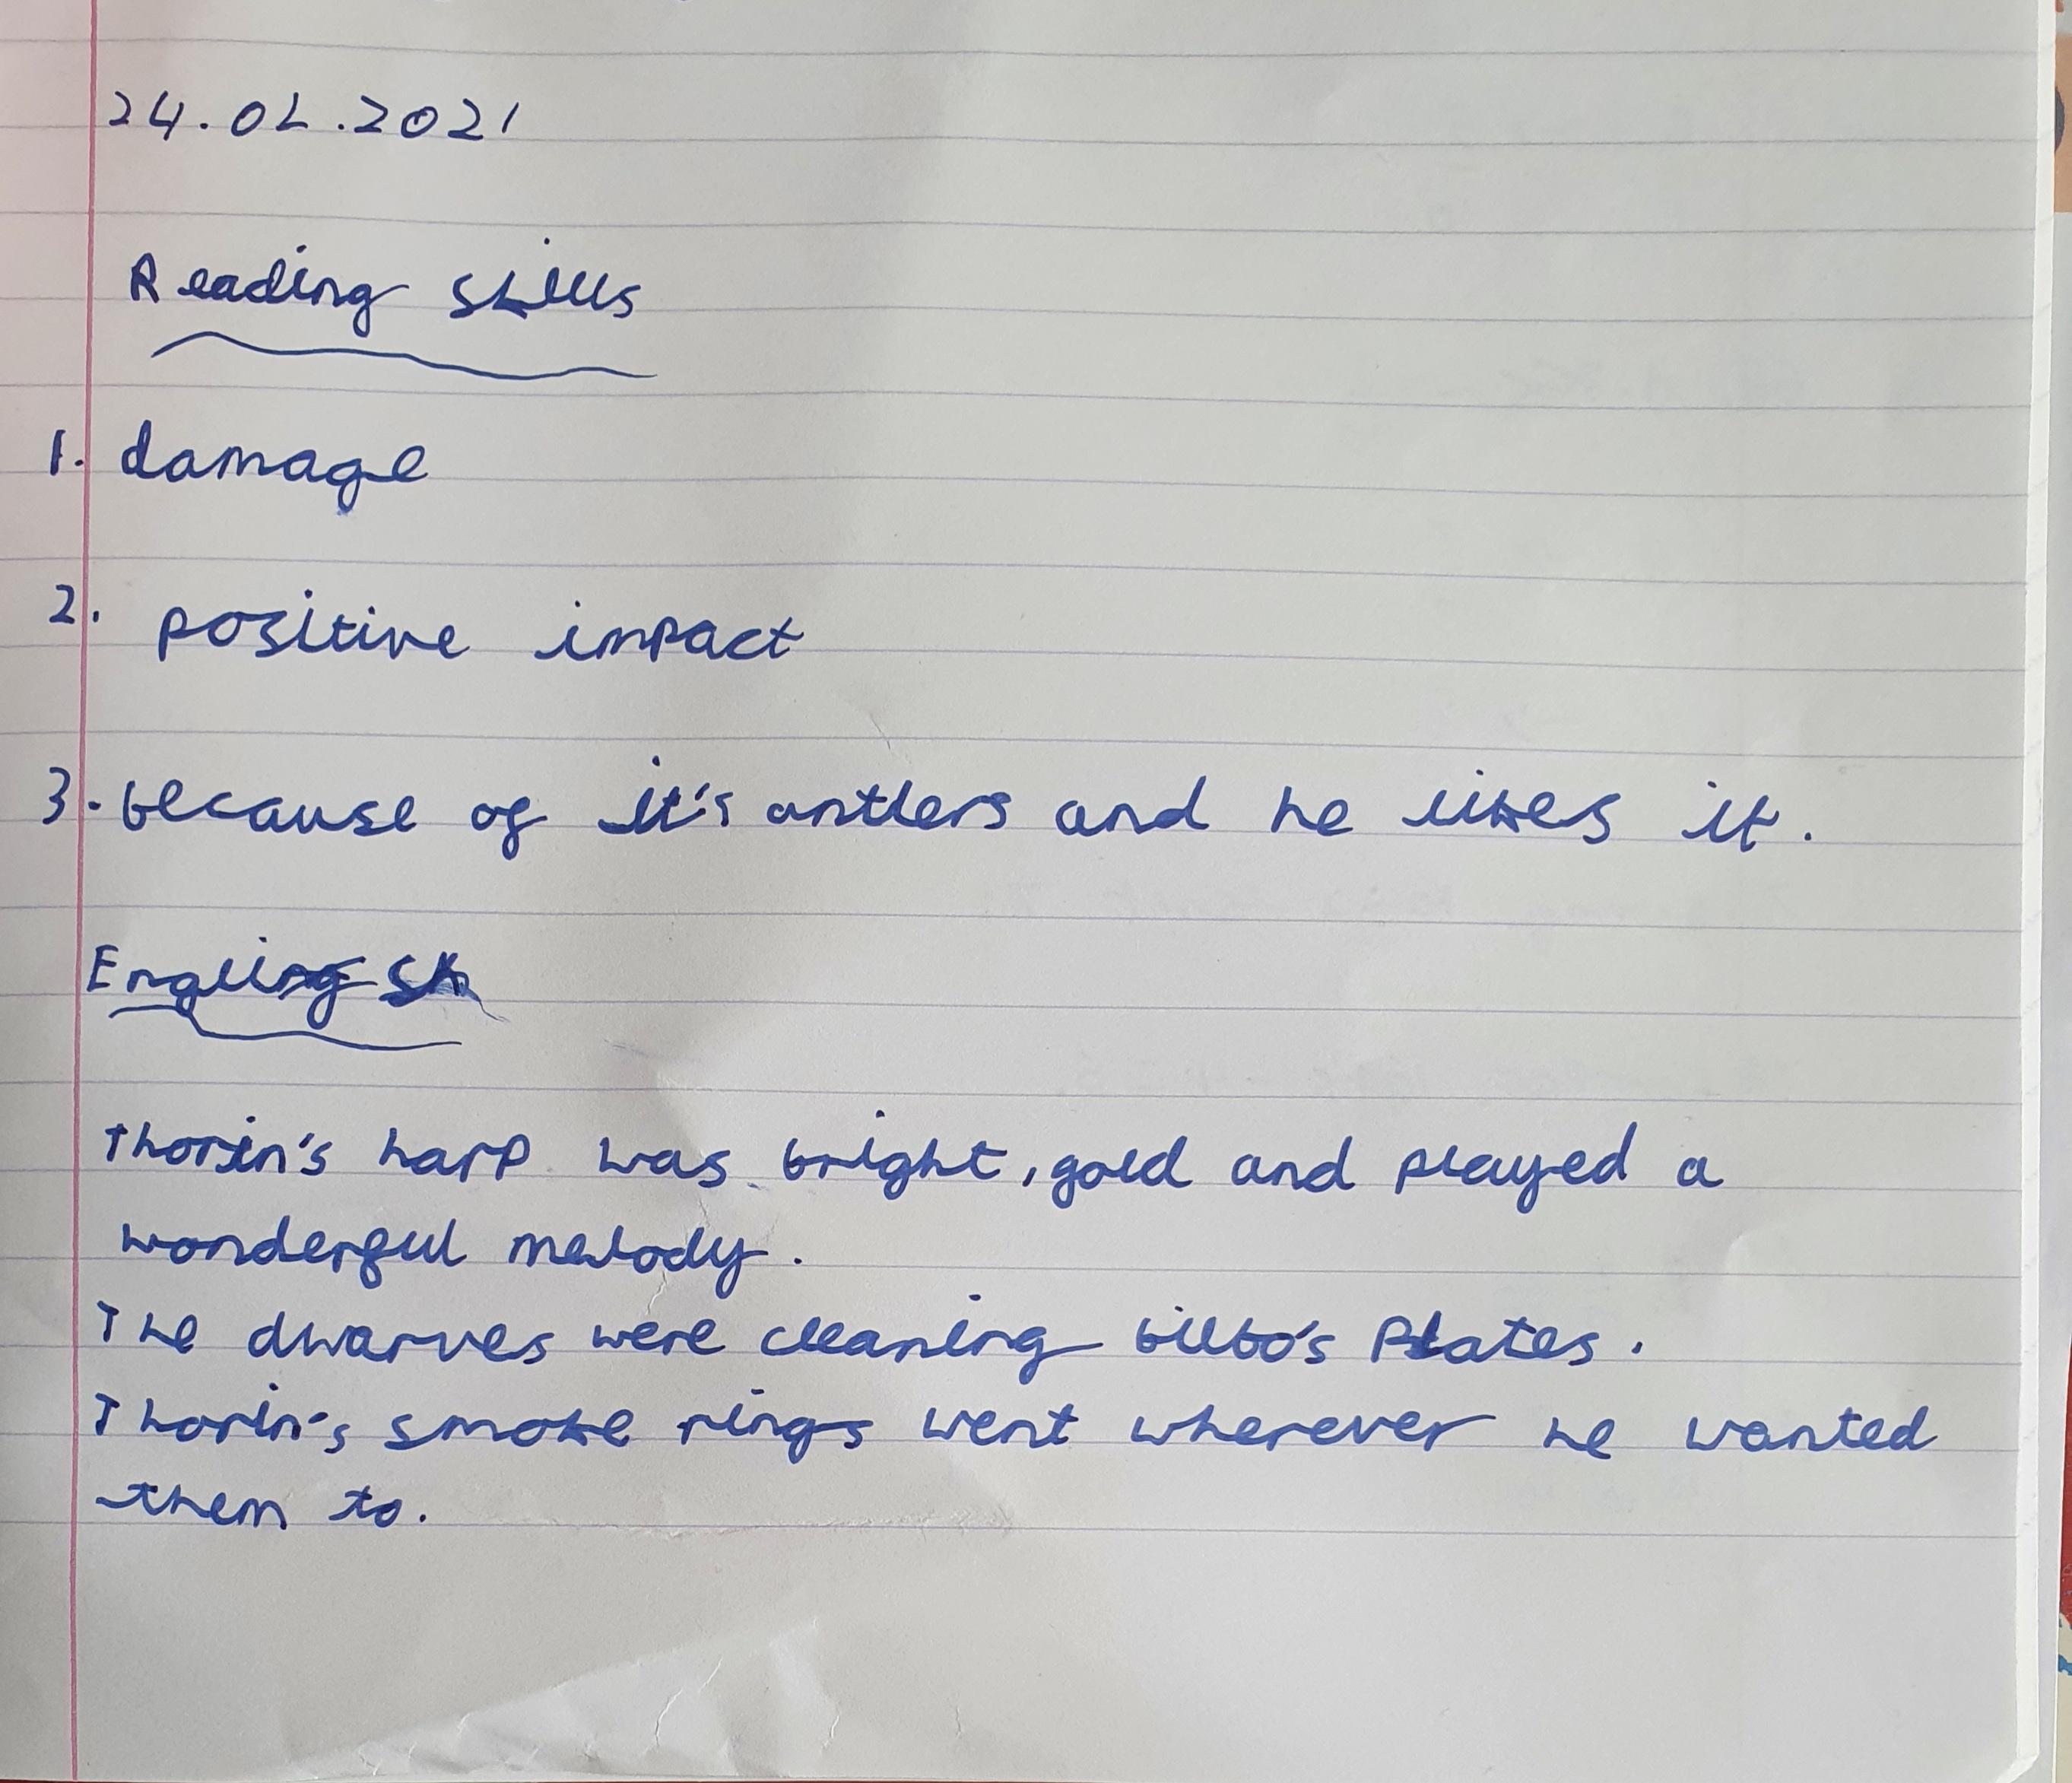 24.02.2021
Reading skills
1. damage
2. positive impact
3. because of it's antlers and he likes it.
Thorin's harp was bright, gold and played a
wonderful melody.
The dwarves were cleaning bilbo's Plates.
Thorin's smoke rings went wherever he wanted
them to.